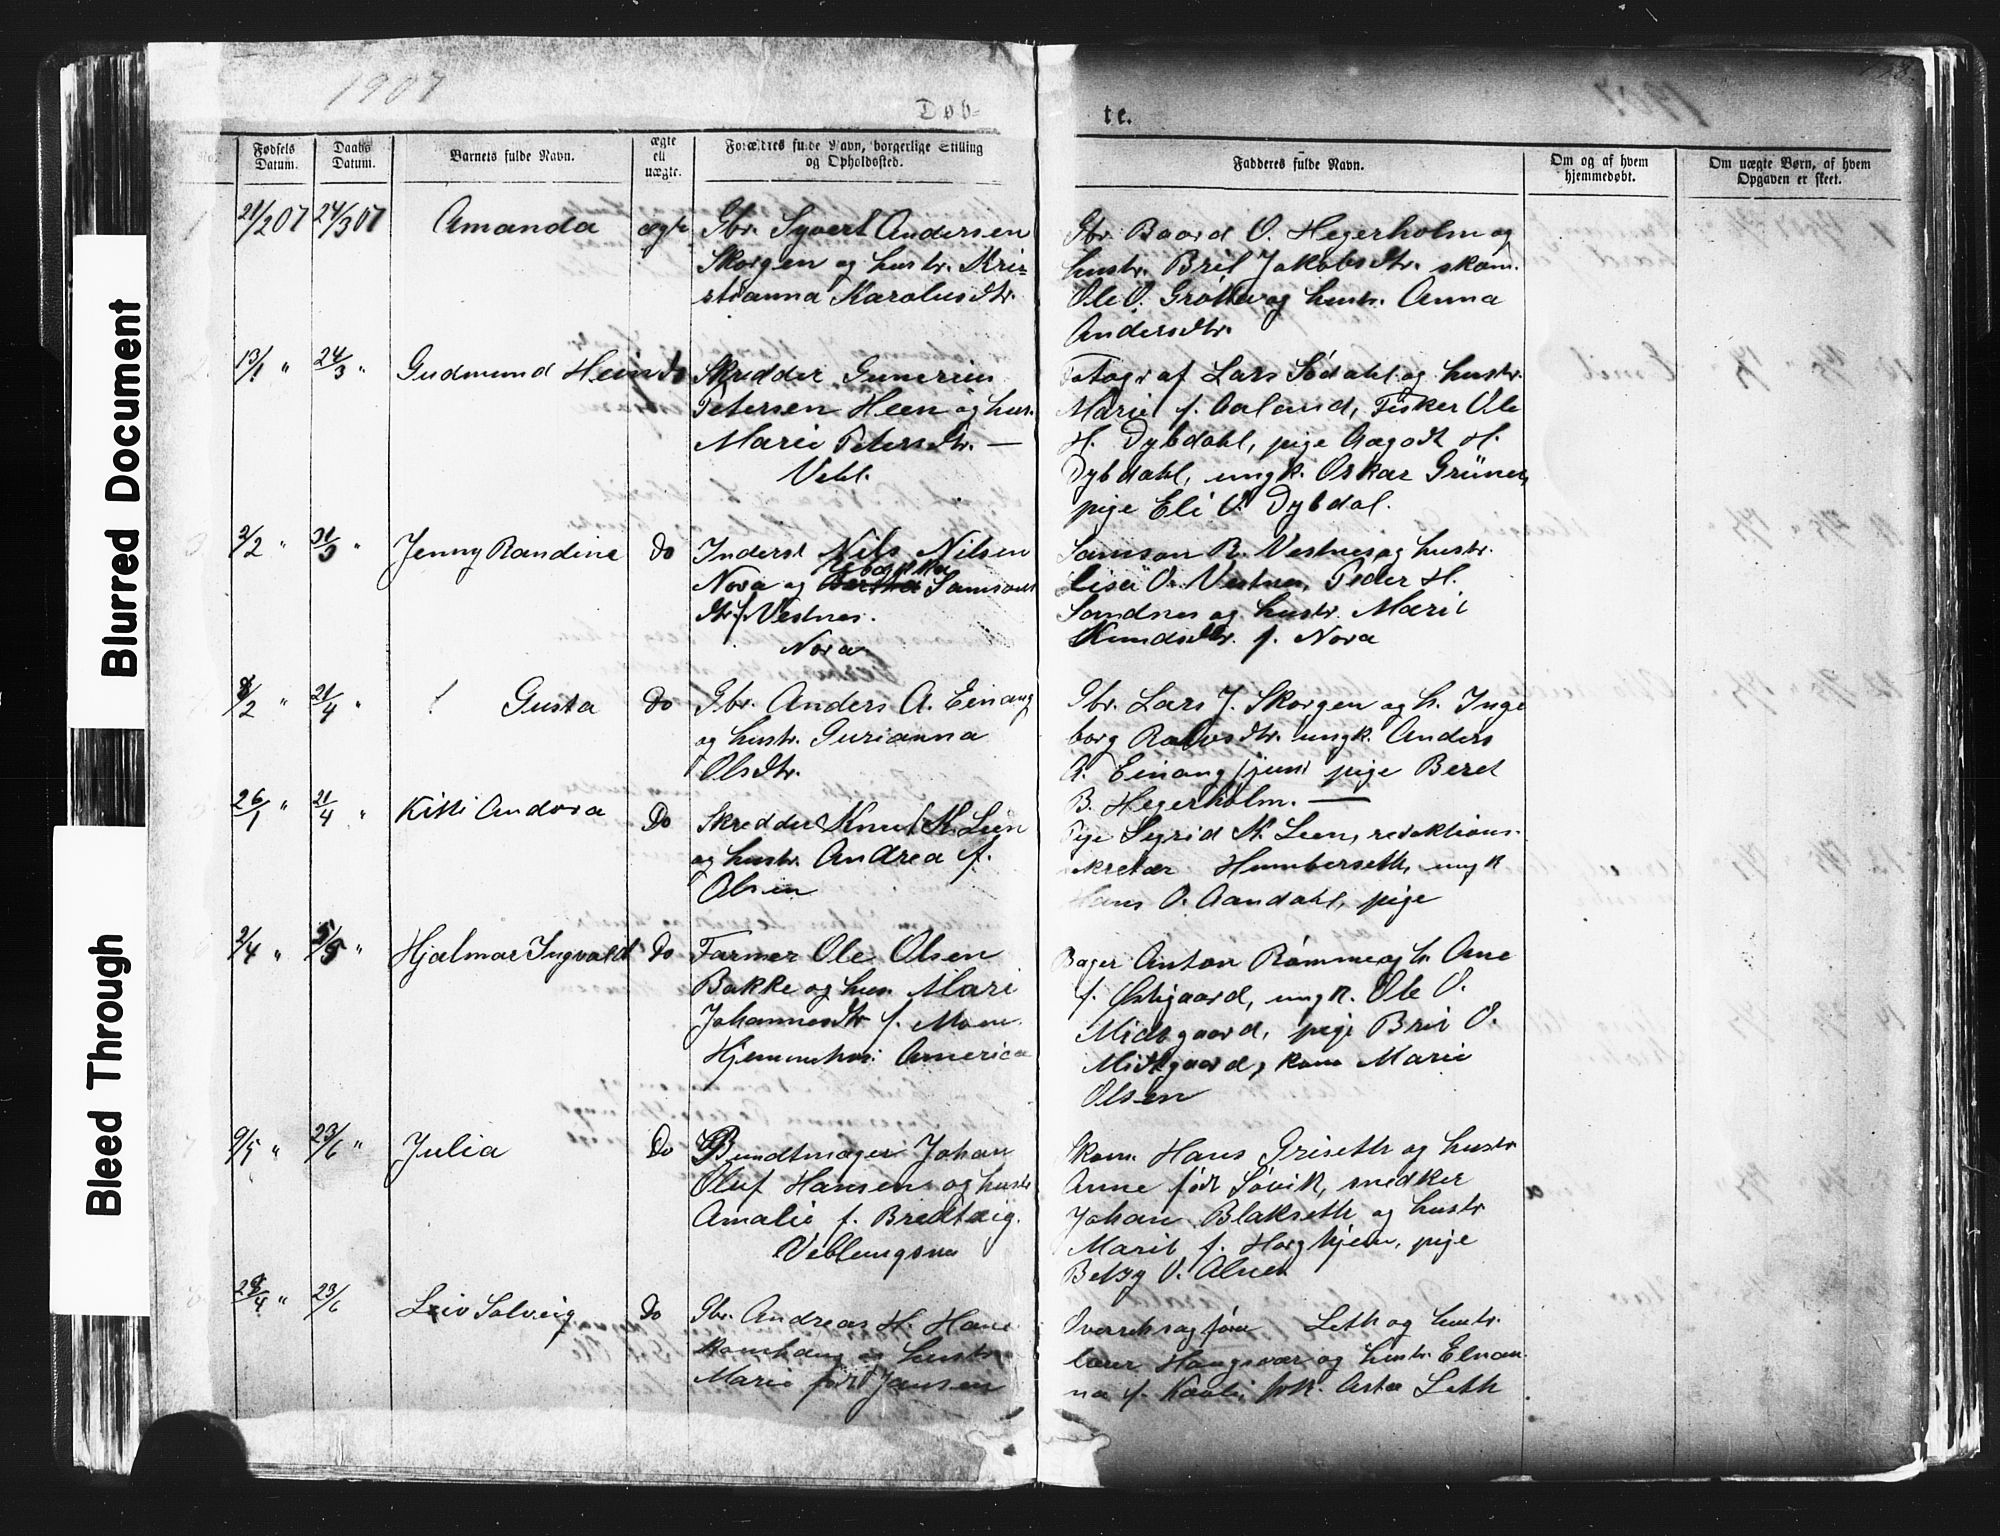 1907
Døb-
te.
1907
Fødsels Datum.
Daabs Datum.
Barnets fulde Navn.
ægte ell uægte.
Forældres fulde Navn, borgerlige Stilling og Opholdssted.
Fadderes fulde Navn.
Om og af hvem hjemmedøbt.
Om uægte Børn, af hvem Opgaven er skeet.
Blurred Document
Bleed Through
21/2 07 24/3 07 Amanda ægte
Gbr. Syvert Andersen
Skorgen og hustr. Kri-
stianna Karolusdtr.
Gbr. Baard O. Hegerholm og
hustr. Brit Jakobsdtr. skom.
Ole O. Grøtta og hustr. Anna
Andersdtr.
13/1 " 24/3 " Gudmund Hein do
Skrædder Gunerius
Petersen Heen og hus.
Marie Petersdtr. —
Vebl.
Fotograf Lars Sødahl og hustr.
Marie f. Aaland, Fisker Ole
H. Dybdahl, pige Aagodt H.
Dybdahl, ungk. Oskar Grüner,
pige Eli O. Dybdal.
2/2 " 31/3 " Jenny Randine Do
Inderst Nils Nilsen
Nora og Samsons
dtr. f. Vestnes.
Nora
Samson B. Vestnes og hustr.
Lisa O. Vestnes, Peder H.
Sandnes og hustr. Marit
Knudsdtr. f. Nora
8/2 " 21/4 " Gusta Do
Gbr. Anders A. Einang
og hustr. Gurianna
Olsdtr.
Gbr. Lars J. Skorgen og h. Inge
borg Rolvsdtr. ungk. Anders
A. Einang juni pige Beret
B. Hegerholm. —
26/1 " 21/4 " Kitti Andora Do
Skrædder Knut K. Leen
og hustr. Andrea f.
Olsen
Pige Sigrid K. Leen, redaktions-
skretær Humberseth, ungk
Hans O. Aandahl, pige
2/4 " 5/5 " Hjalmar Ingvald Do
Farmer Ole Olsen
Bakke og hus. Mari
Johannesdtr f. Moen.
Hjemmehør. America
Bager Anton Rømme og h. Ane
f. Østigaard, ungk. Ole O.
Midtgaard, pige Brit O.
Midtgaard, kone Marie
Olsen
9/5 " 23/6 " Julia Do
Bundtmager Johan
Oluf Hansen og hustr
Amalie f. Bredtæig.
Veblungsnæ
Skom. Hans Griseth og hustr
Anne født Søvik, snedker
Johan Blakseth og hustr
Marit f. Horghjem, pige
Betzy O. Alnes
28/4 " 23/6 Liv Solveig Do
Gbr. Andreas H. Hane
og hustr.
Marie født Jansen
Overretssagfører Leth og hustr.
lærer Haugsvær og hustr. Elnan-
na f. Kaali, frk. Asta Leth